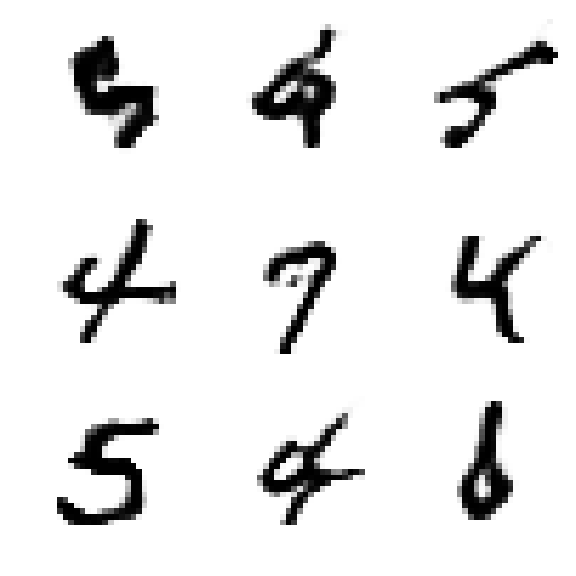 5 5
4 7 4
5 4 6